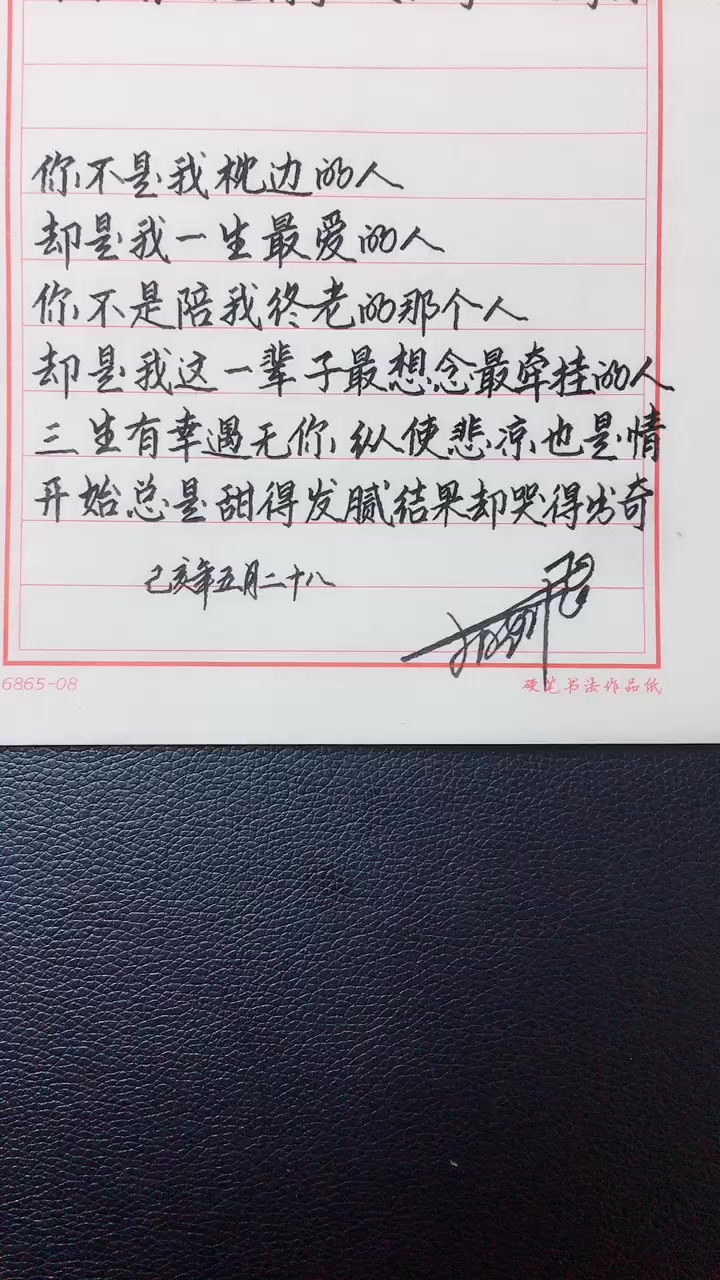 你不是我枕边的人
却是我一生最爱的人
你不是陪我终老的那个人
却是我这一辈子最想念最牵挂的人
三生有幸遇无你纵使悲凉也是情
开始总是甜得发腻结果却哭得出奇
己亥年五月二十八
6865-08
硬笔书法作品纸